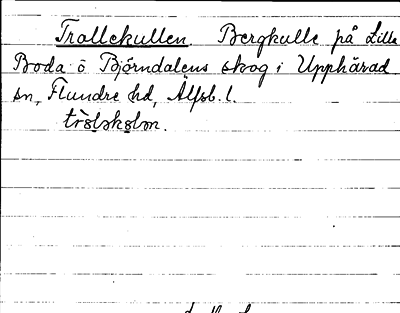 Trollekullen Bergkulle på Lilla
Boda o Björndalens skog i Upphärad
sn, Flundre hd, Älfsb. l.